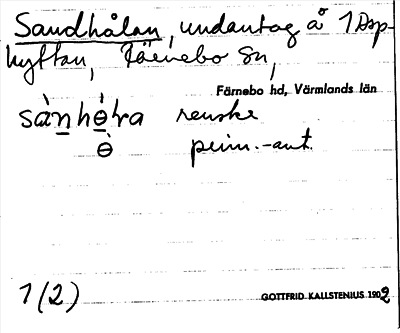 Sandhålan, undantag å 1 Asp-
hyttan, Färnebo sn,
Färnebo hd, Värmlands län
sànhɵ̀lra
ɵ̀
1(2)
GOTTFRID KALLSTENIUS 1902